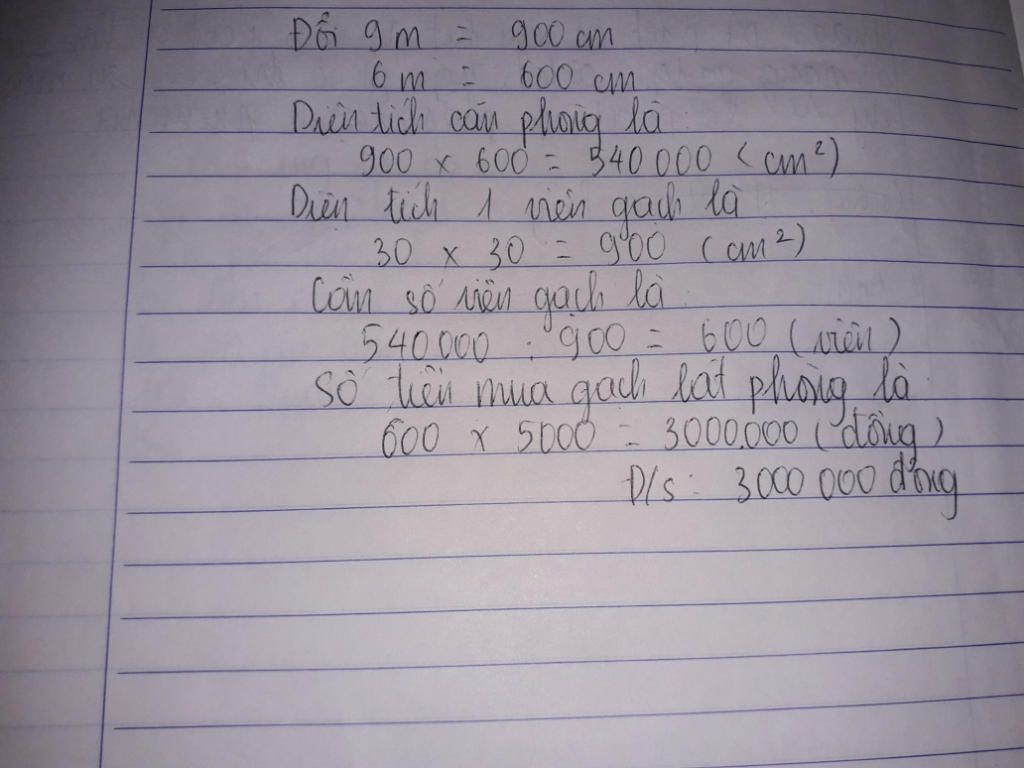 Đổi 9 m = 900 cm
6 m = 600 cm
Diện tích căn phòng là
900 x 600 = 540 000 (cm²)
Diện tích 1 viên gạch là
30 x 30 = 900 (cm²)
Cần số viên gạch là
540 000 : 900 = 600 (viên)
Số tiền mua gạch lát phòng là
600 x 5000 = 3000.000 (đồng)
Đ/s: 3000 000 đồng